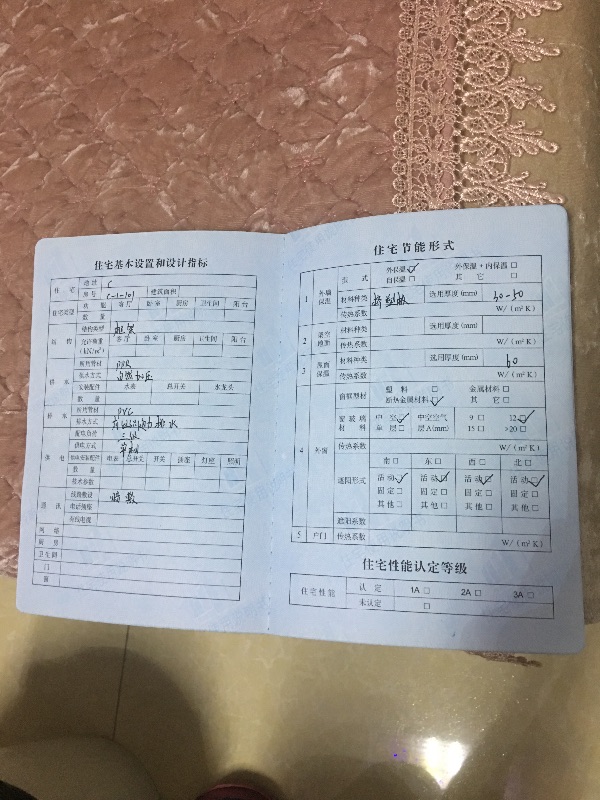 住宅基本设置和设计指标
住宅 地址 C
房号 C-1-101 建筑面积
住宅类型 功能 客厅 卧室 厨房 卫生间 阳台
数量
结构 结构类型 框架
允许荷重 (kN/m²) 客厅 卧室 厨房 卫生间 阳台
给水 所用管材 PPR
供水方式
安装配件 水表 总开关 水龙头
排水 所用管材 PVC
排水方式 排水
供电 配电负荷 三级
供电方式
电表 总开关 开关 插座 灯座 照明
数量
技术参数
通讯 线路敷设 暗敷
电话插座
有线电视
厨房
卫生间
门
窗
住宅节能形式
1 外墙保温 型式 外保温☑ 外保温+内保温□
自保温□ 其它□
材料种类 挤塑板 选用厚度(mm) 30-50
传热系数 W/(m²K)
2 架空地面 材料种类 选用厚度(mm)
传热系数 W/(m²K)
3 屋面保温 材料种类 选用厚度(mm) 60
传热系数 W/(m²K)
4 外窗 窗框型材 塑料□ 金属材料□
断热金属材料☑ 其它□
窗玻璃材料 中空☑ 中空空气 9□ 12☑
单层□ 层A(mm) 15□ >20□
传热系数 W/(m²K)
遮阳形式 南□ 东□ 西□ 北□
活动☑ 活动☑ 活动☑ 活动☑
固定□ 固定□ 固定□ 固定□
其他□ 其他□ 其他□ 其他□
遮阳系数
5 户门 传热系数 W/(m²K)
住宅性能认定等级
住宅性能 认定 1A□ 2A□ 3A□
未认定 □